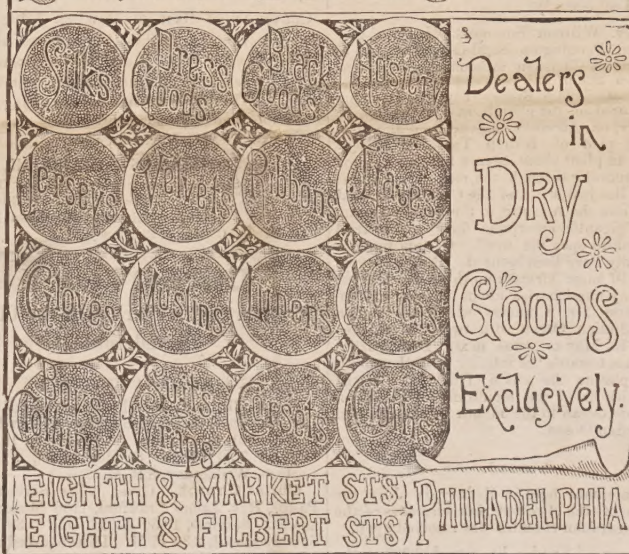 Silks
Dress
Goods
Black
Goods
Hosiery
Jerseys
Velvets
Ribbons
Laces
Gloves
Muslins
Linens
Notions
Boys
Clothing
Suits
Wraps
Corsets
Cloths
Dealers
in
DRY
GOODS
Exclusively.
EIGHTH & MARKET STS
EIGHTH & FILBERT STS
PHILADELPHIA